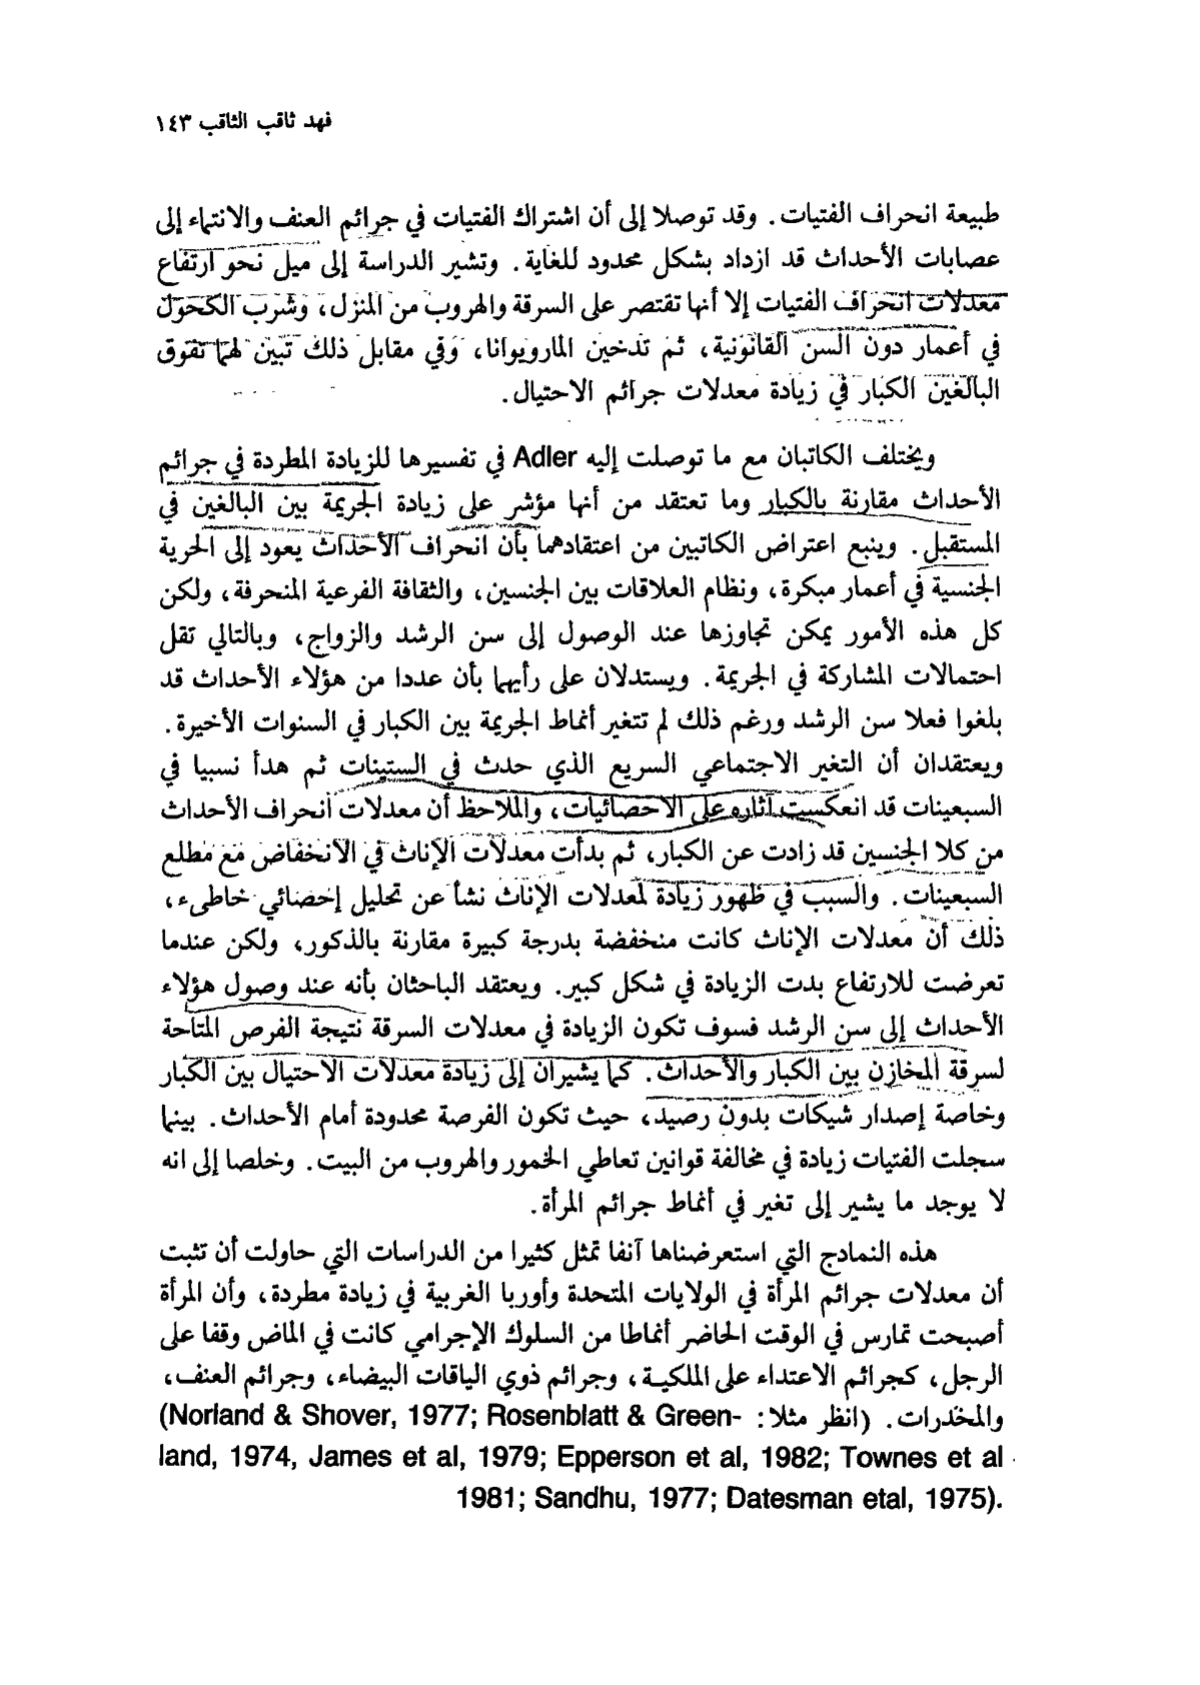 فهد ثاقب الثاقب ١٤٣
طبيعة انحراف الفتيات. وقد توصلا إلى أن اشتراك الفتيات في جرائم العنف والانتماء إلى
عصابات الأحداث قد ازداد بشكل محدود للغاية. وتشير الدراسة إلى ميل نحو ارتفاع
معدلات انحراف الفتيات إلا أنها تقتصر على السرقة والهروب من المنزل، وشرب الكحول
في أعمار دون السن القانونية، ثم تدخين الماريوانا، وفي مقابل ذلك تبين لهما تفوق
البالغين الكبار في زيادة معدلات جرائم الاحتيال.
ويختلف الكاتبان مع ما توصلت إليه Adler في تفسيرها للزيادة المطردة في جرائم
الأحداث مقارنة بالكبار وما تعتقد من أنها مؤشر على زيادة الجريمة بين البالغين في
المستقبل. وينبع اعتراض الكاتبين من اعتقادهما بأن انحراف الأحداث يعود إلى الحرية
الجنسية في أعمار مبكرة، ونظام العلاقات بين الجنسين، والثقافة الفرعية المنحرفة، ولكن
كل هذه الأمور يمكن تجاوزها عند الوصول إلى سن الرشد والزواج، وبالتالي تقل
احتمالات المشاركة في الجريمة. ويستدلان على رأيهما بأن عددا من هؤلاء الأحداث قد
بلغوا فعلا سن الرشد ورغم ذلك لم تتغير أنماط الجريمة بين الكبار في السنوات الأخيرة.
ويعتقدان أن التغير الاجتماعي السريع الذي حدث في الستينات ثم هدأ نسبيا في
السبعينات قد انعكست آثاره على الاحصائيات، والملاحظ أن معدلات انحراف الأحداث
من كلا الجنسين قد زادت عن الكبار، ثم بدأت معدلات الإناث في الانخفاض مع مطلع
السبعينات. والسبب في ظهور زيادة لمعدلات الإناث نشأ عن تحليل إحصائي خاطىء،
ذلك أن معدلات الإناث كانت منخفضة بدرجة كبيرة مقارنة بالذكور، ولكن عندما
تعرضت للارتفاع بدت الزيادة في شكل كبير. ويعتقد الباحثان بأنه عند وصول هؤلاء
الأحداث إلى سن الرشد فسوف تكون الزيادة في معدلات السرقة نتيجة الفرص المتاحة
لسرقة المخازن بين الكبار والأحداث. كما يشيران إلى زيادة معدلات الاحتيال بين الكبار
وخاصة إصدار شيكات بدون رصيد، حيث تكون الفرصة محدودة أمام الأحداث. بينما
سجلت الفتيات زيادة في مخالفة قوانين تعاطي الخمور والهروب من البيت. وخلصا إلى انه
لا يوجد ما يشير إلى تغير في أنماط جرائم المرأة.
هذه النماذج التي استعرضناها آنفا تمثل كثيرا من الدراسات التي حاولت أن تثبت
أن معدلات جرائم المرأة في الولايات المتحدة وأوربا الغربية في زيادة مطردة، وأن المرأة
أصبحت تمارس في الوقت الحاضر أنماطا من السلوك الإجرامي كانت في الماض وقفا على
الرجل، كجرائم الاعتداء على الملكية، وجرائم ذوي الياقات البيضاء، وجرائم العنف،
والمخدرات. (انظر مثلا: (Norland & Shover, 1977; Rosenblatt & Green-
land, 1974, James et al, 1979; Epperson et al, 1982; Townes et al
1981; Sandhu, 1977; Datesman etal, 1975).